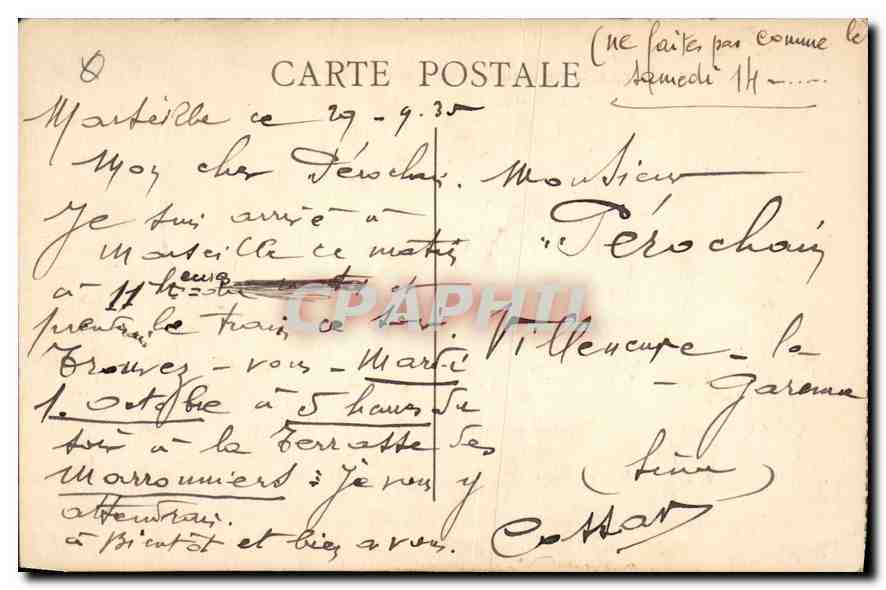 (ne faites pas comme le
samedi 14 -.....
CARTE POSTALE
Marseille ce 29-9.35
Mon cher Pérochain.
Je suis arrivé à
Marseille ce matin
à 11 heures et
prendrai le train ce soir.
Trouvez-vous - Mardi
1. Octobre à 5 heures du
soir à la Terrasse des
Marronniers : Je vous y
attendrai.
à Bientôt et bien a vous.
Monsieur
Pérochain
Villeneuve-la-
Garenne
(Seine)
Cossar
CPAPHIL